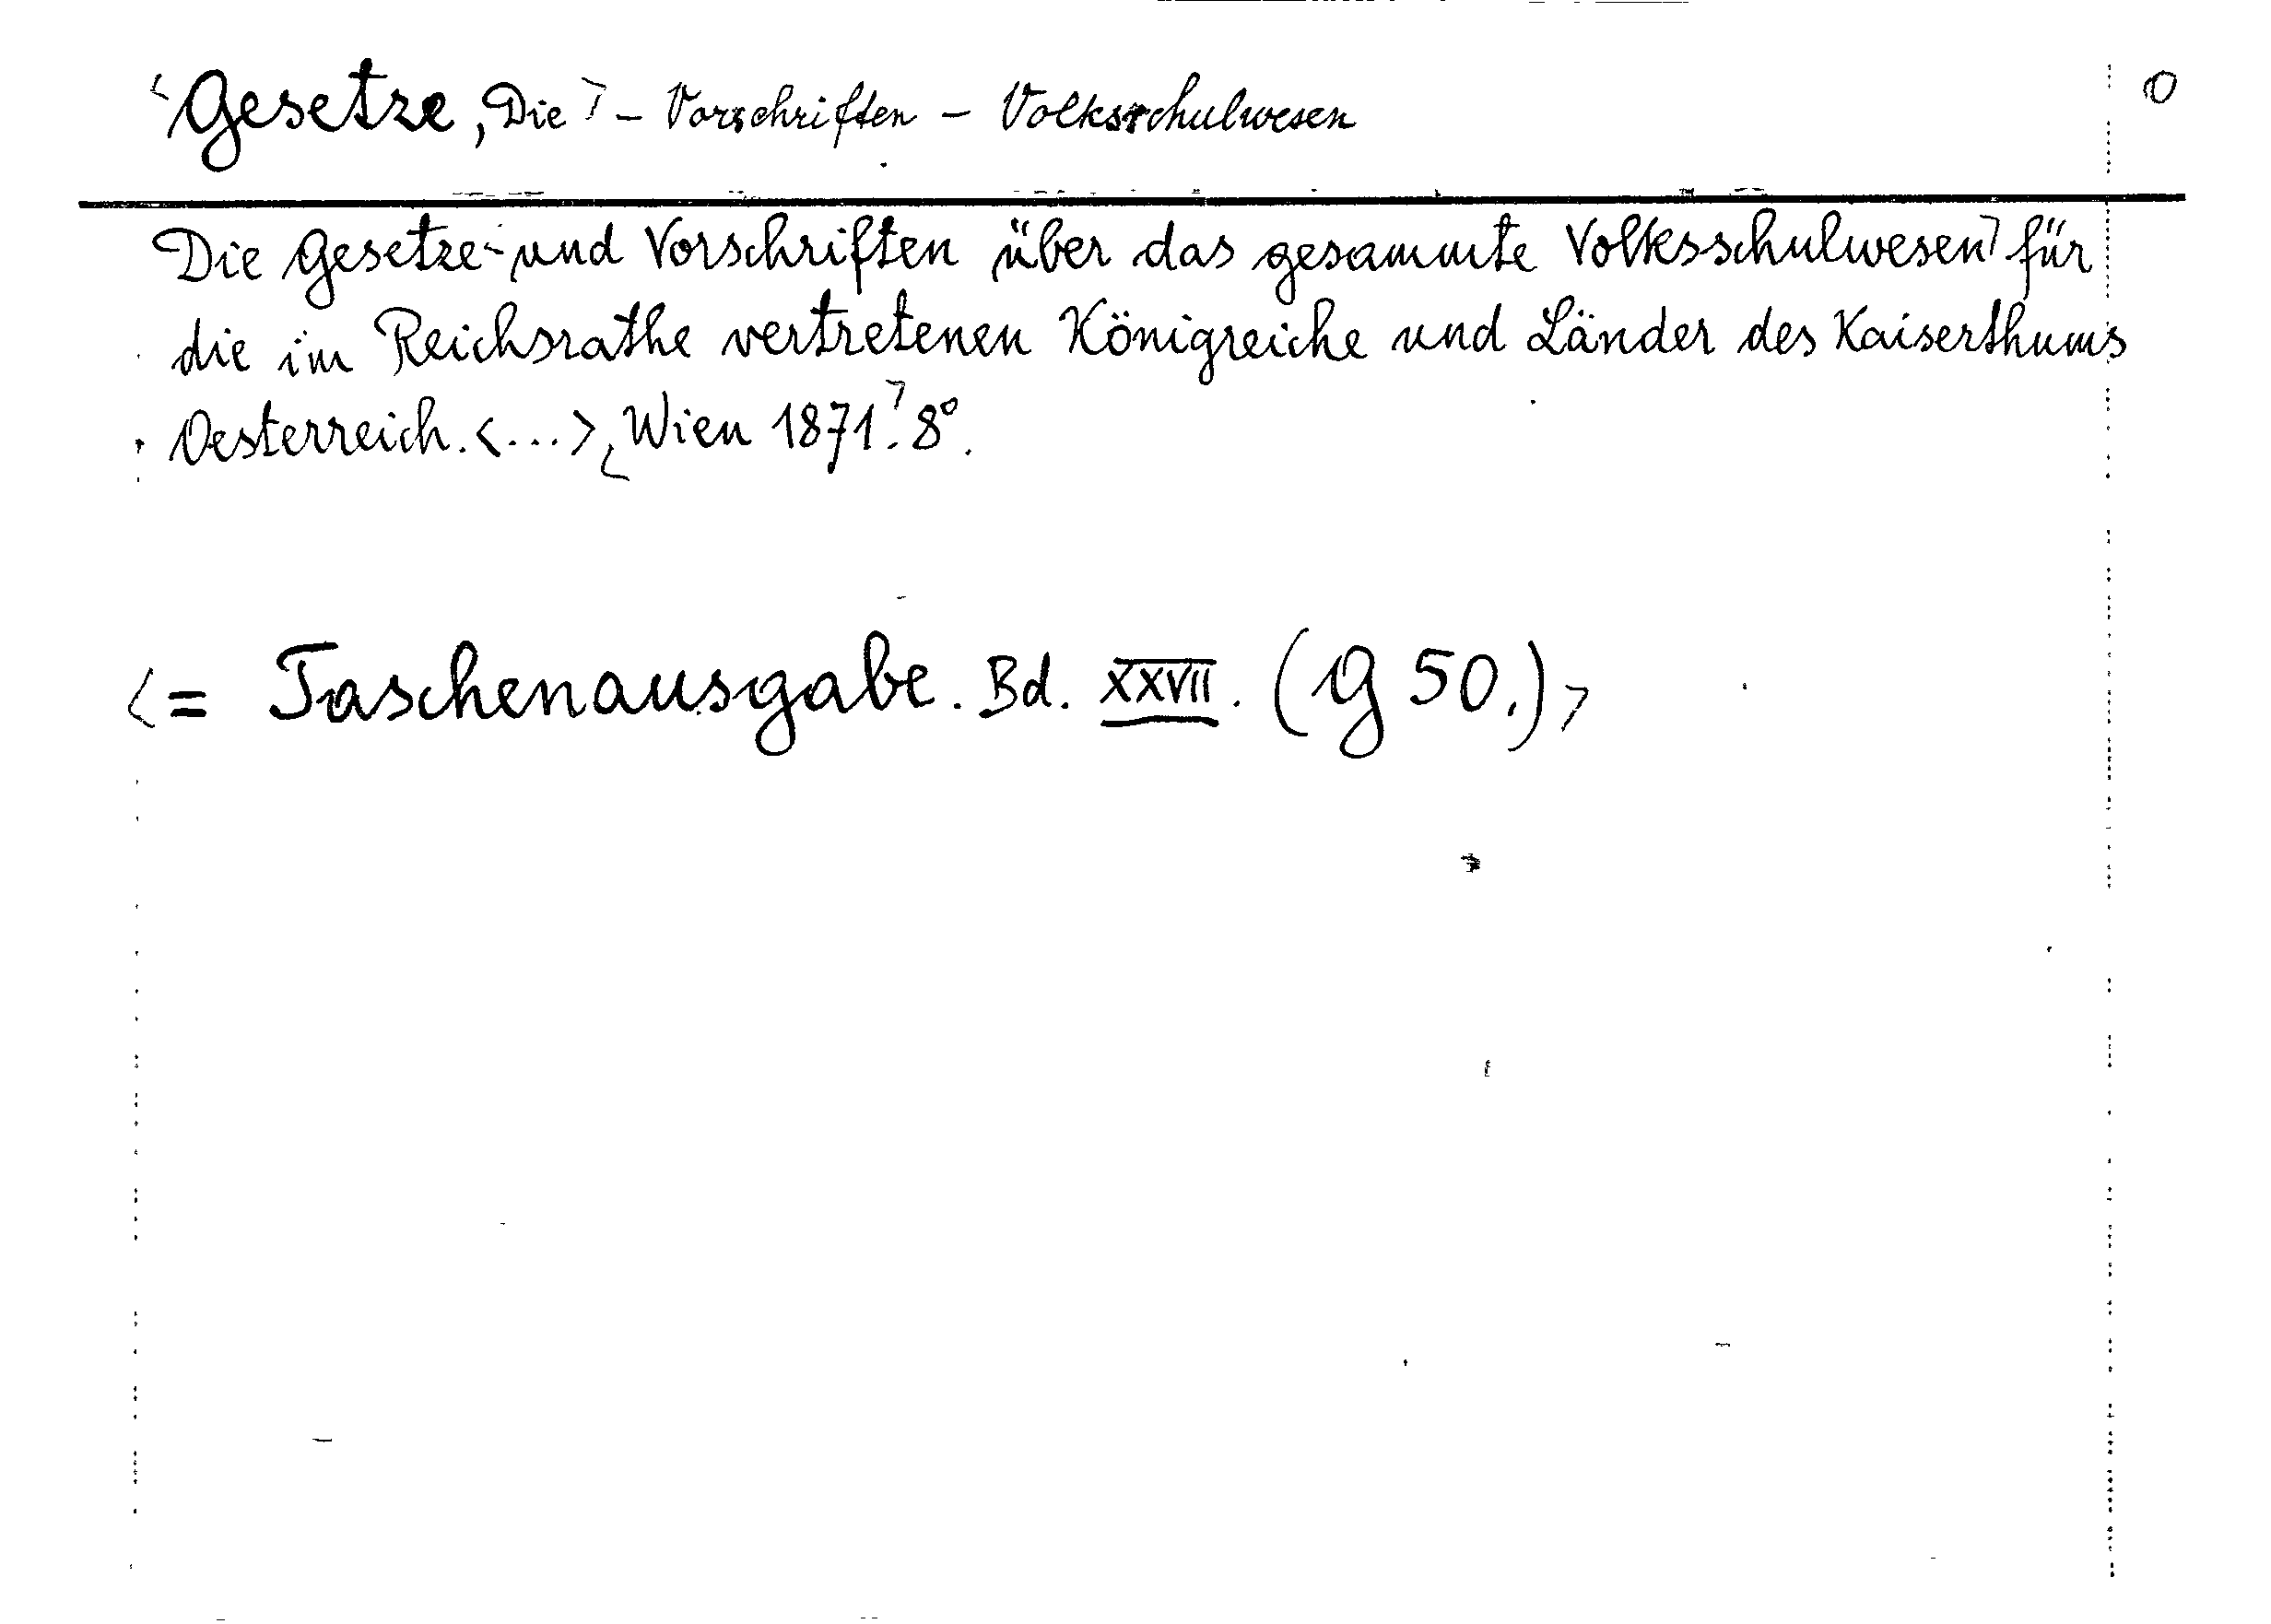 ‹Gesetze, Die› – Vorschriften – Volksschulwesen 0
Die Gesetze und Vorschriften über das gesammte Volksschulwesen› für
die im Reichsrathe vertretenen Königreiche und Länder des Kaiserthums
Oesterreich. <...>, ‹Wien 1871›. 8°.
‹= Taschenausgabe. Bd. XXVII. (G 50.)›